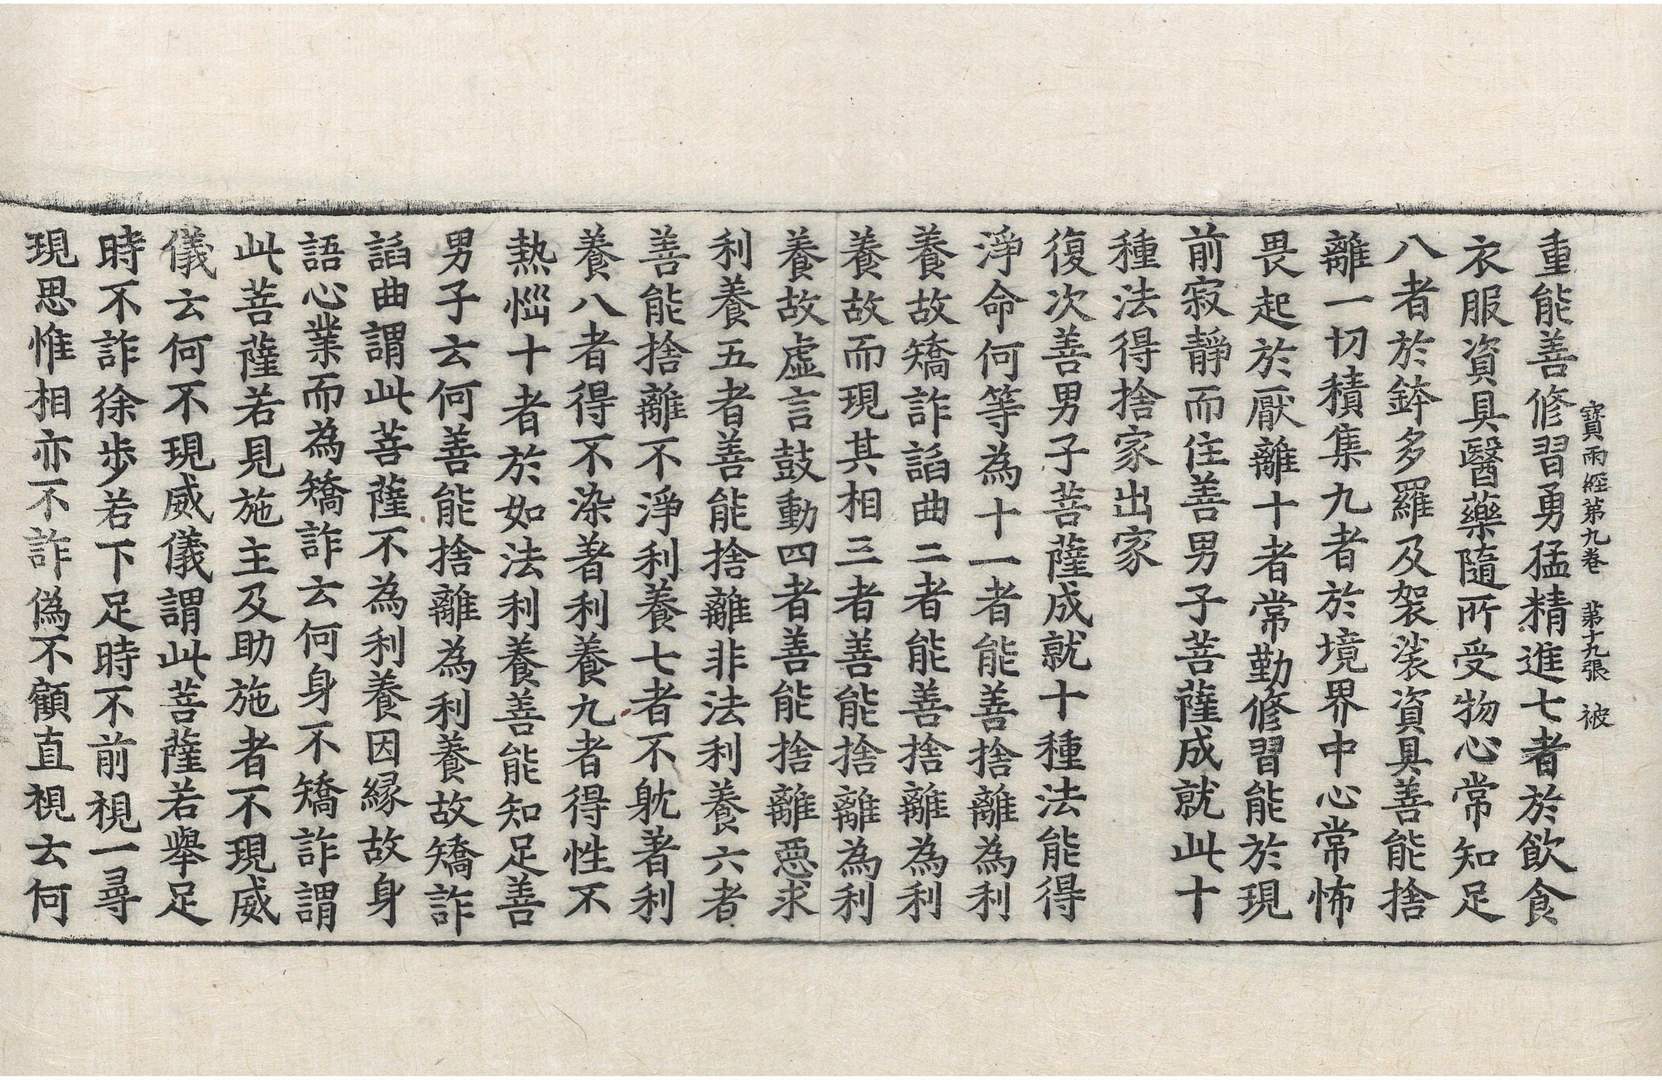 寶雨經第九卷　第十九張　被
重能善修習勇猛精進七者於飲食
衣服資具醫藥隨所受物心常知足
八者於鉢多羅及袈裟資具善能捨
離一切積集九者於境界中心常怖
畏起於厭離十者常勤修習能於現
前寂靜而住善男子菩薩成就此十
種法得捨家出家
復次善男子菩薩成就十種法能得
淨命何等為十一者能善捨離為利
養故矯詐謟曲二者能善捨離為利
養故而現其相三者善能捨離為利
養故虛言鼓動四者善能捨離惡求
利養五者善能捨離非法利養六者
善能捨離不淨利養七者不躭著利
養八者得不染著利養九者得性不
熱惱十者於如法利養善能知足善
男子云何善能捨離為利養故矯詐
謟曲謂此菩薩不為利養因緣故身
語心業而為矯詐云何身不矯詐謂
此菩薩若見施主及助施者不現威
儀云何不現威儀謂此菩薩若舉足
時不詐徐步若下足時不前視一尋
現思惟相亦不詐偽不顧直視云何